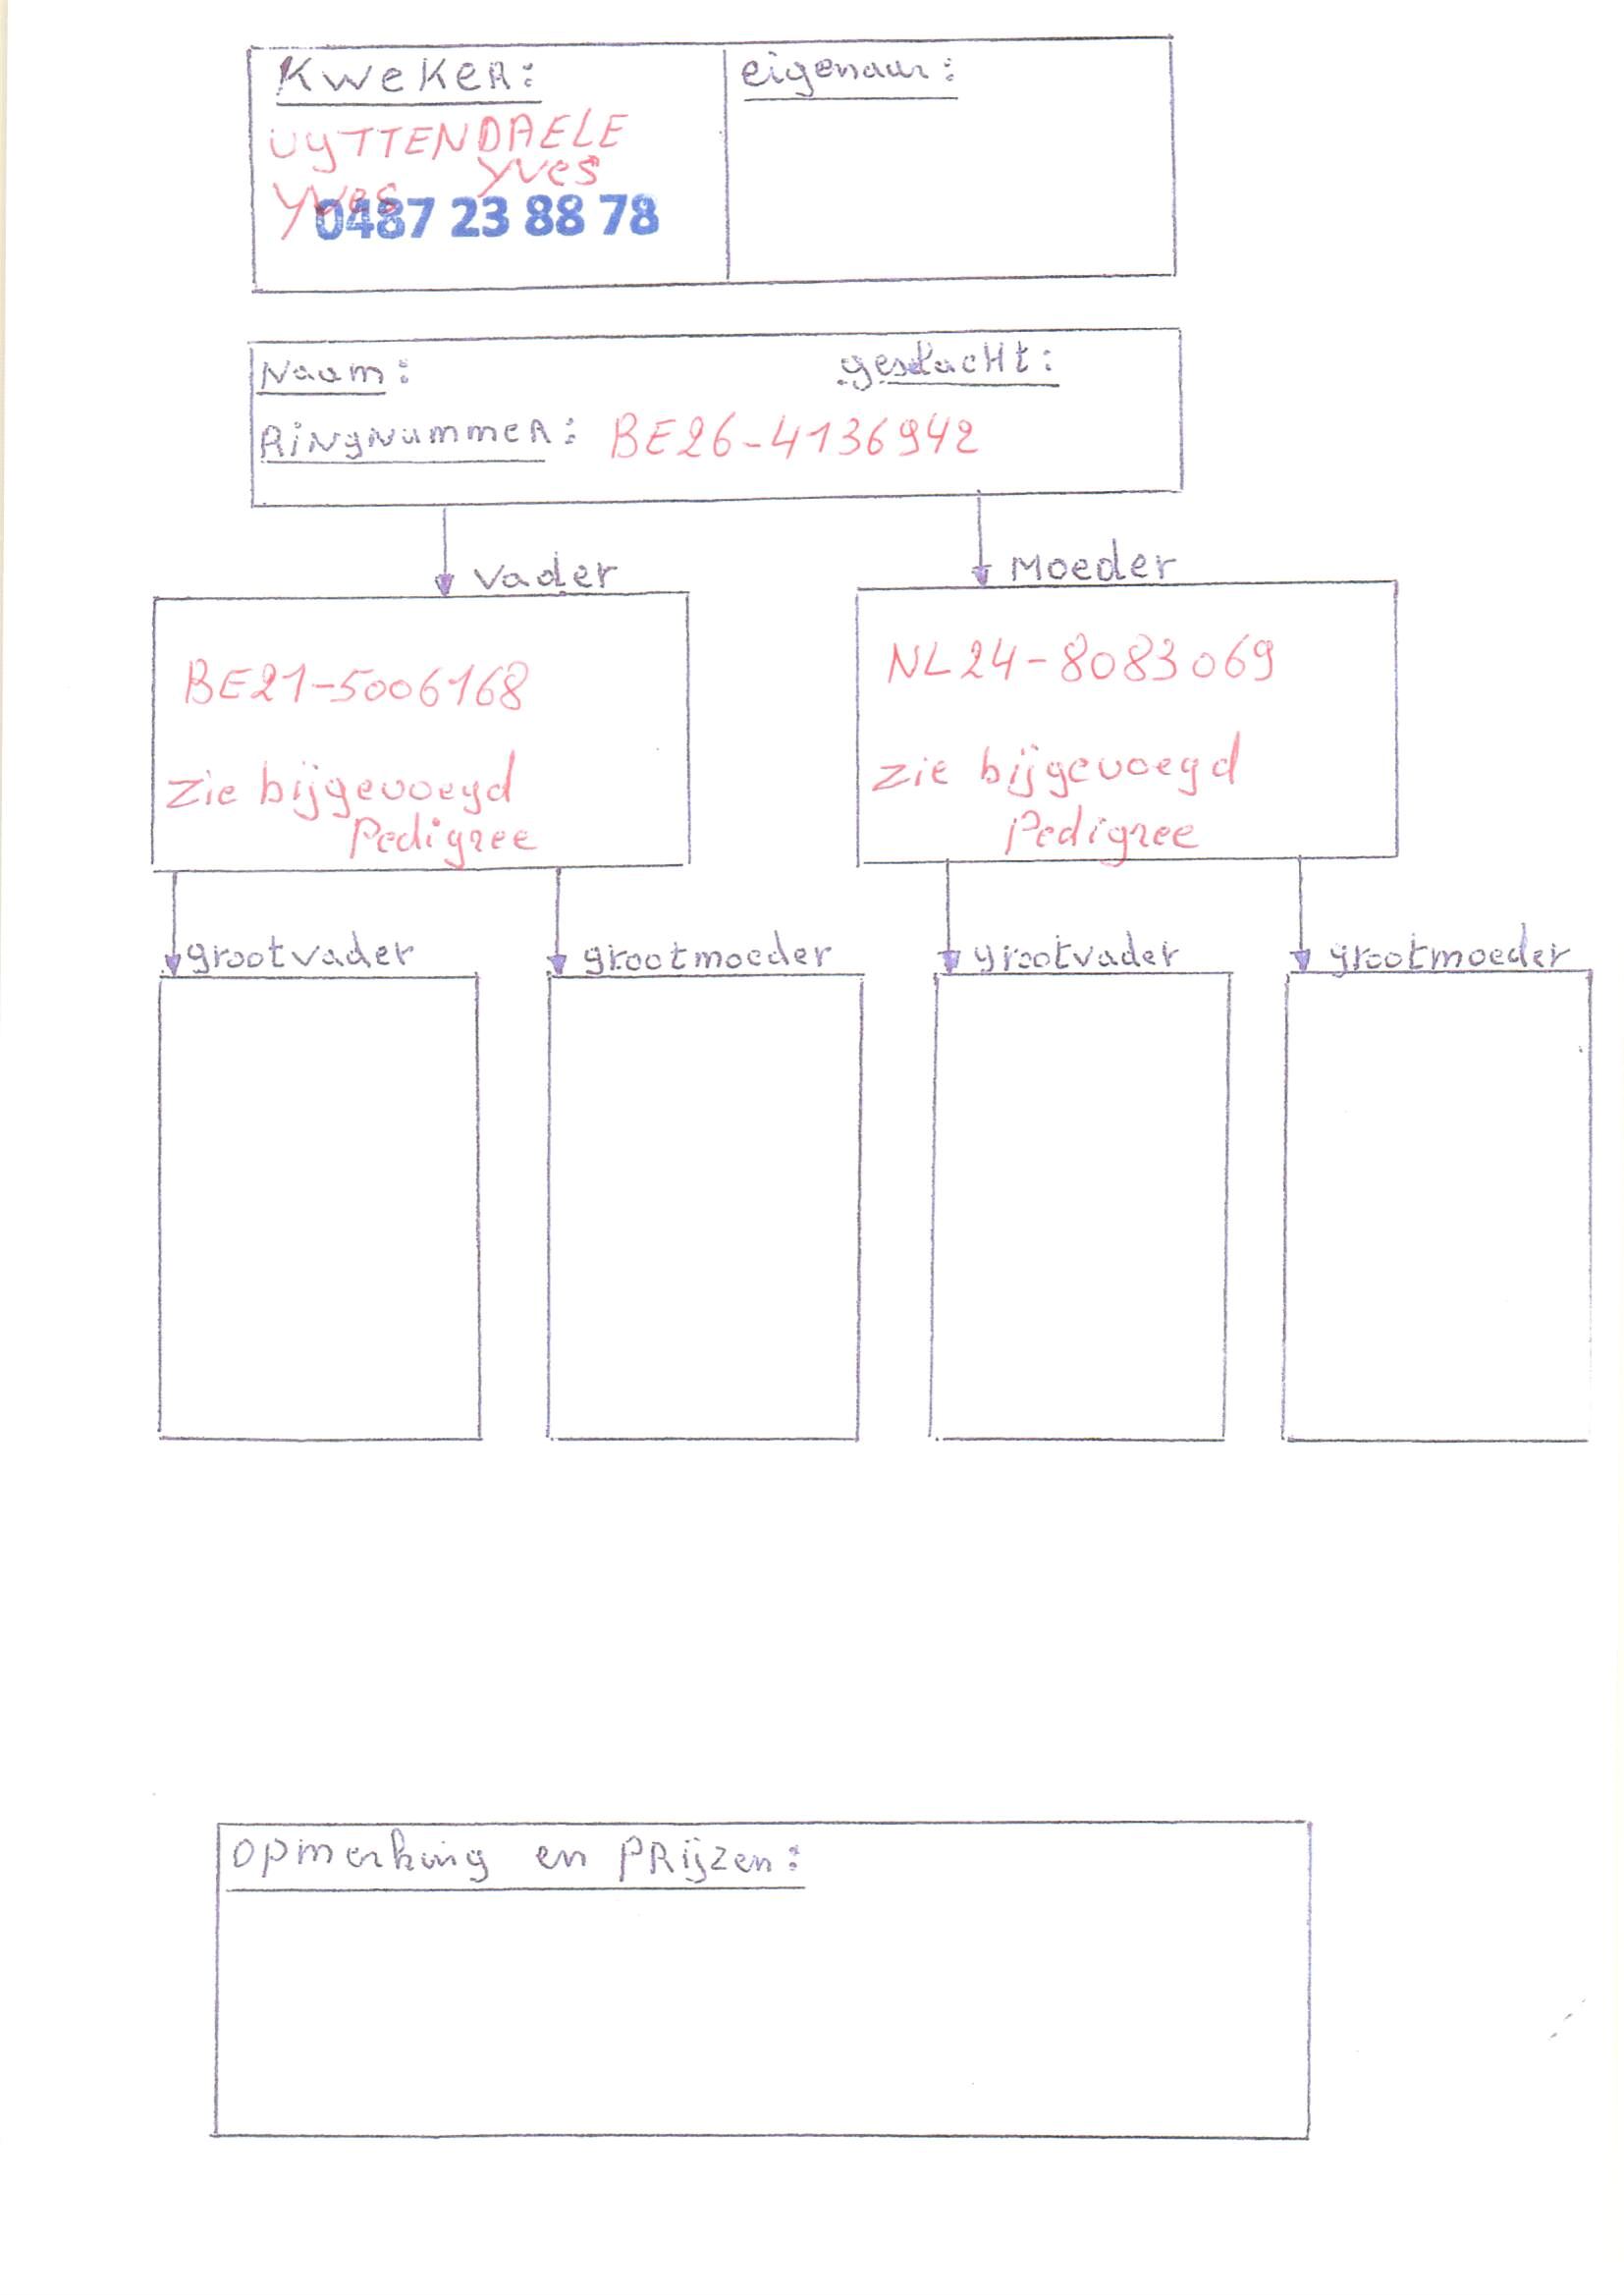 Kweker:
eigenaar:
UYTTENDAELE
Yves
Yves
0487 23 88 78
Naam:
geslacht:
Ringnummer: BE26-4136942
Vader
Moeder
BE21-5006168
zie bijgevoegd
Pedigree
NL24-8083069
zie bijgevoegd
Pedigree
grootvader
grootmoeder
grootvader
grootmoeder
opmerking en PRijzen: